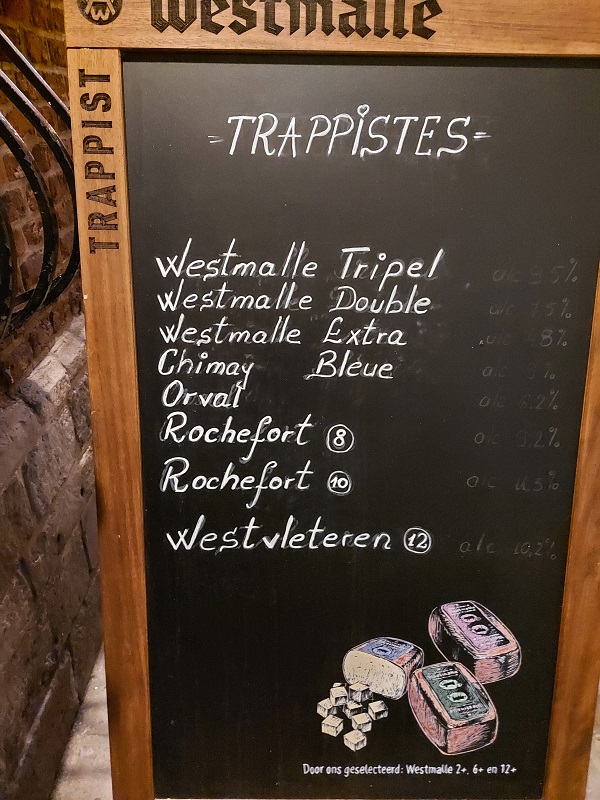 Westmalle
TRAPPIST
-TRAPPISTES-
Westmalle Tripel alc 9.5%
Westmalle Double alc 7.5%
Westmalle Extra alc
Chimay Bleue alc
Orval alc 6.2%
Rochefort 8 alc 9.2%
Rochefort 10 alc
Westvleteren 12 alc 10,2%
Door ons geselecteerd: Westmalle 2+, 6+ en 12+